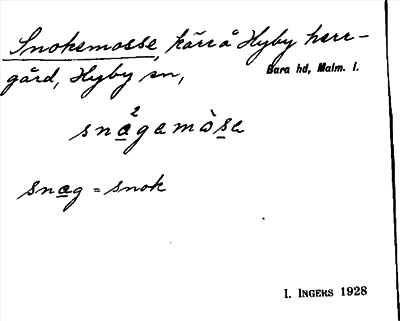 Snokemosse, kärr å Hyby herr-
gård, Hyby sn,
Bara hd, Malm. l.
sna̲²gamòs̲a
sna̲g = snok
I. INGERS 1928